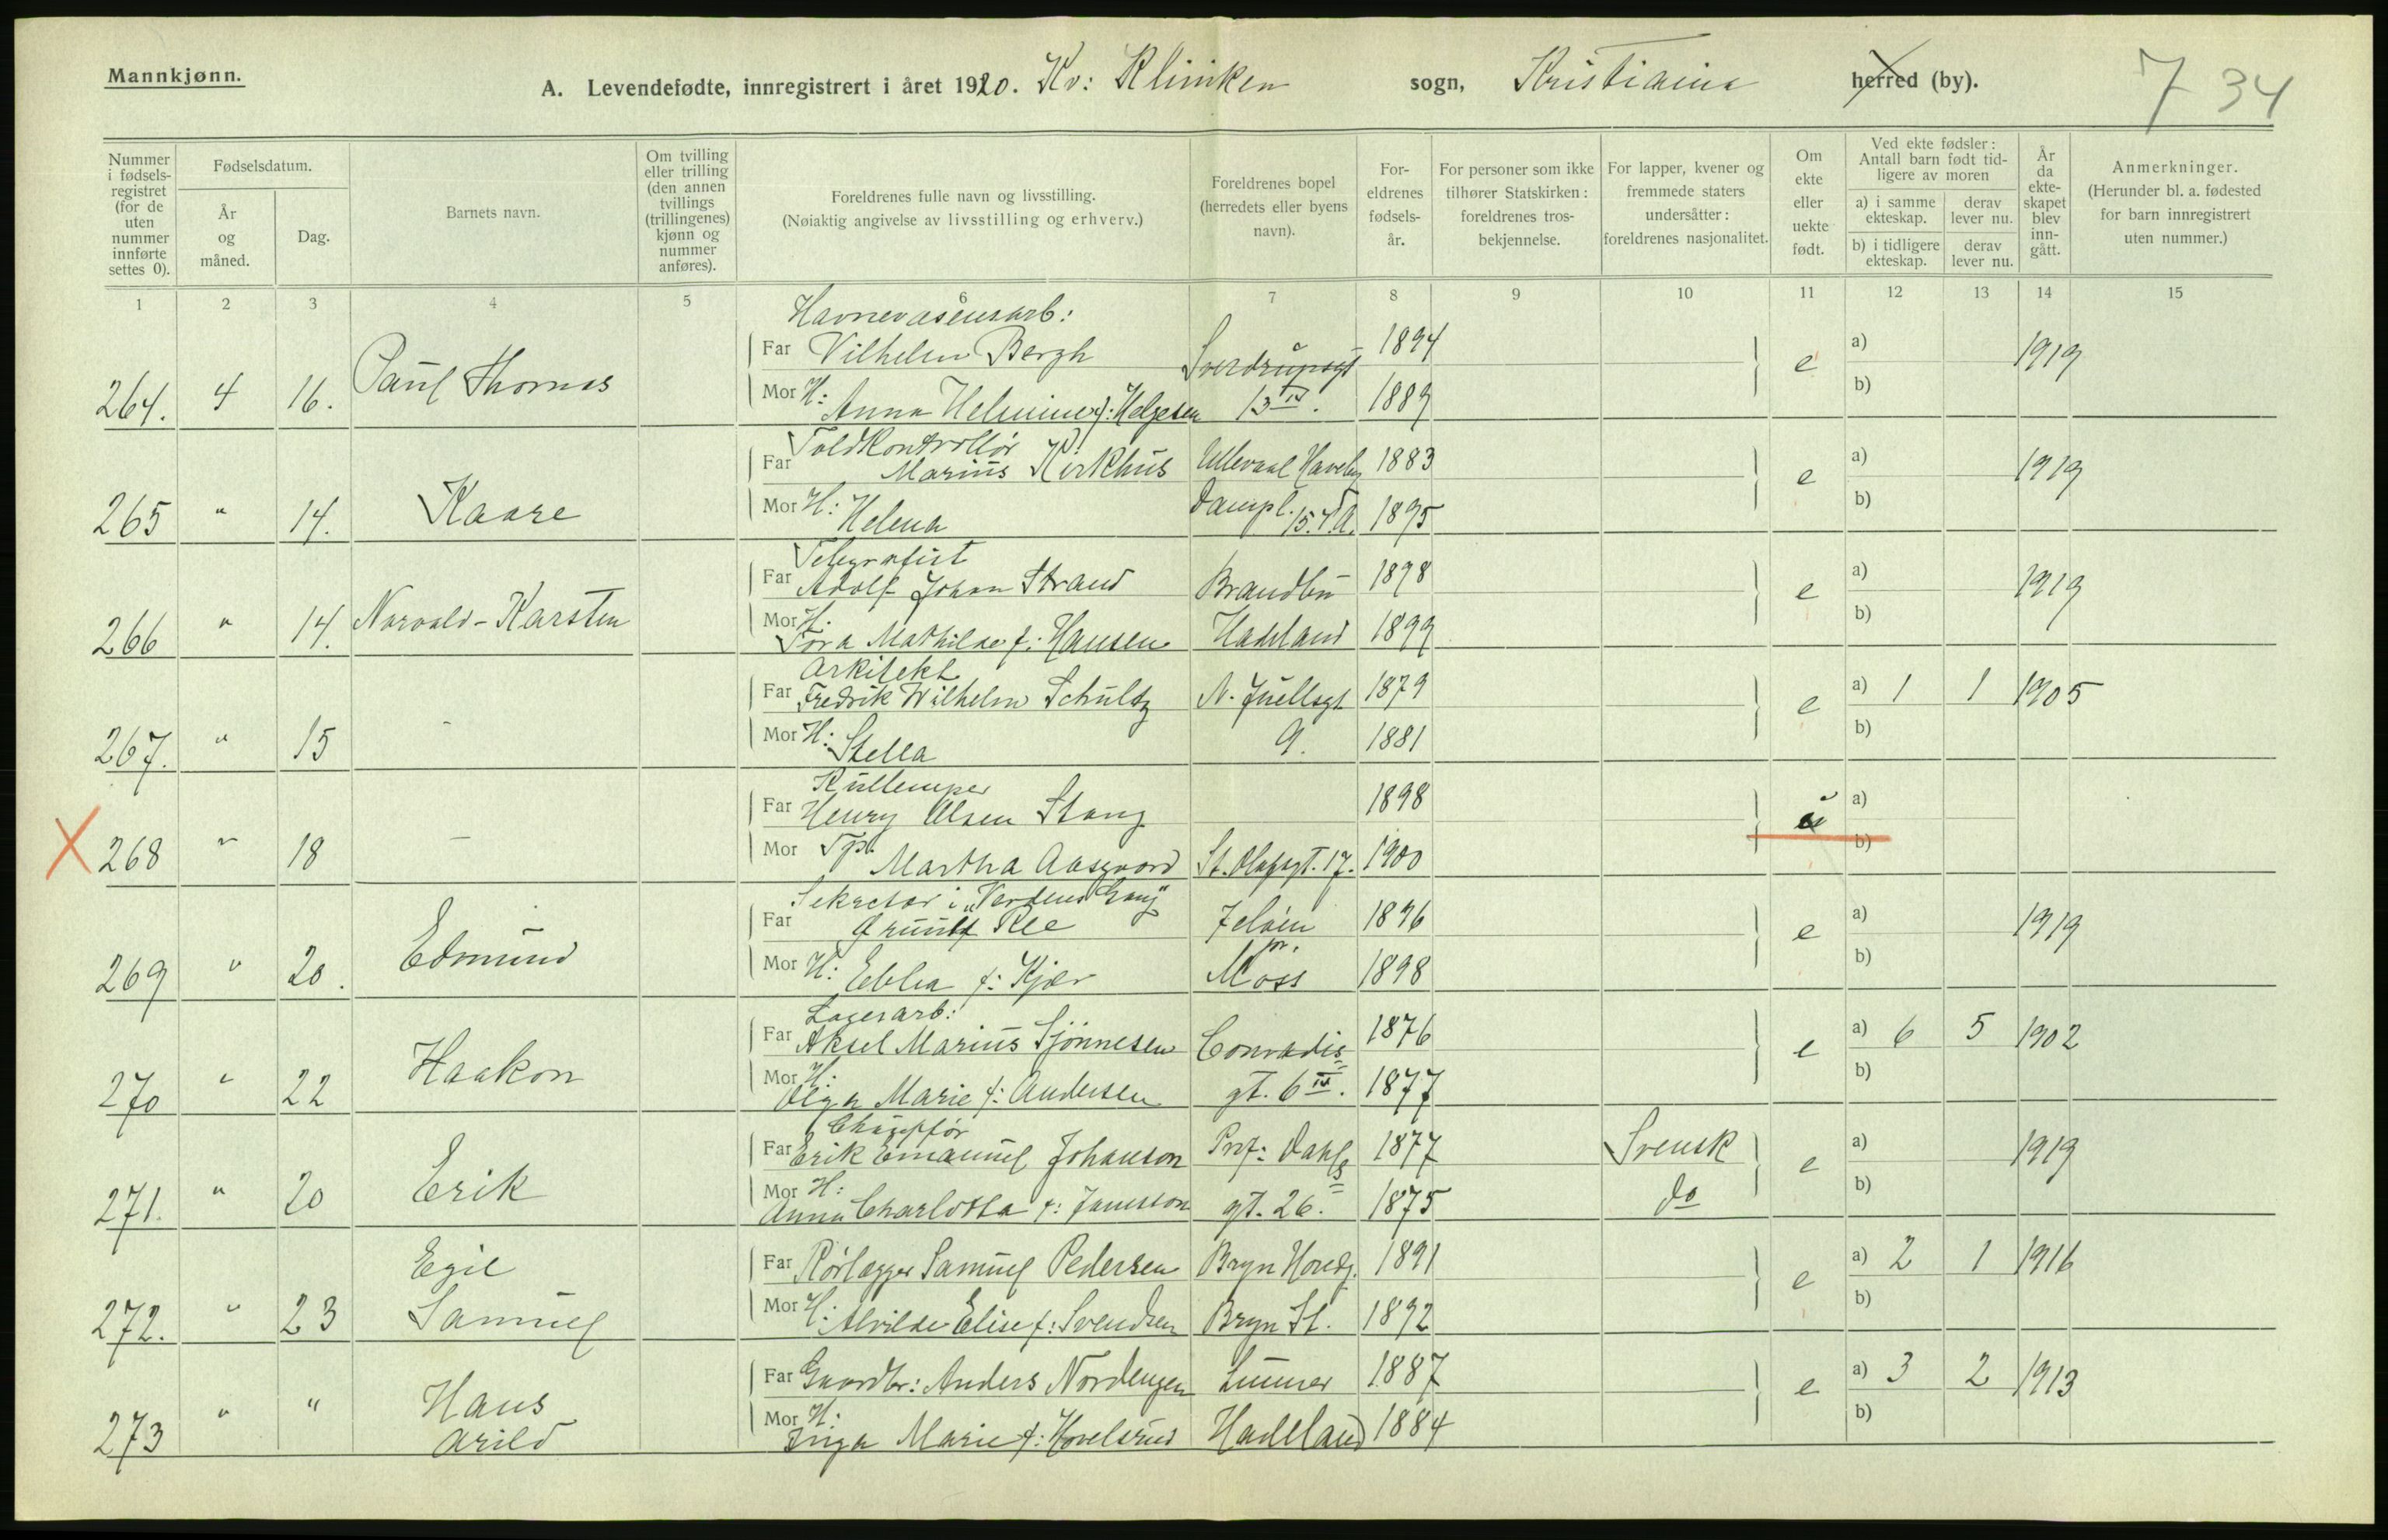 Mannkjønn.
A. Levendefødte, innregistrert i året 1920. Kv: Kliniken sogn, Kristiania herred (by).
7 34
Nummer i fødselsregistret (for de uten nummer innførte settes 0).
Fødselsdatum.
År og måned.
Dag.
Barnets navn.
Om tvilling eller trilling (den annen tvillings (trillingenes) kjønn og nummer anføres).
Foreldrenes fulle navn og livsstilling.
(Nøiaktig angivelse av livsstilling og erhverv.)
Foreldrenes bopel (herredets eller byens navn).
Foreldrenes fødselsår.
For personer som ikke tilhører Statskirken: foreldrenes trosbekjennelse.
For lapper, kvener og fremmede staters undersåtter: foreldrenes nasjonalitet.
Om ekte eller uekte født.
Ved ekte fødsler: Antall barn født tidligere av moren
a) i samme ekteskap.
derav lever nu.
b) i tidligere ekteskap.
derav lever nu.
År da ekteskapet blev inngått.
Anmerkninger.
(Herunder bl. a. fødested for barn innregistrert uten nummer.)
1 2 3 4 5 6 7 8 9 10 11 12 13 14 15
Havnevæsensarb:
Far Vilhelm Bergh Sverdrupsgt 1894 a) 1919
264. 4 16. Paul Thomas Mor H: Anna Helmine f: Helgesen 13 IV. 1889 e b)
Toldkontrollør
Far Marius Kirkhus Ullevaal Haveby 1883 a) 1919
265 " 14. Kaare Mor H: Helena Dampl. 15. 1895 e b)
Telegrafist
Far Adolf Johan Strand Brandbu 1898 a) 1919
266 " 14. Norvald-Karsten Mor H: Tora Mathilde f: Hansen Hadeland 1899 e b)
Arkitekt
Far Fredrik Wilhelm Schultz N. Juellsgt 1879 a) 1 1 1905
267. " 15 - Mor H: Stella 9. 1881 e b)
Kullemper
Far Henry Olsen Stang 1898 a)
X 268 " 18 - Mor Tp. Martha Aasgaard St. Olafsgt. 17. 1900 u b)
Sekretær i "Verdens Gang"
Far Ree Jeløen 1896 a) 1919
pr.
269 " 20. Edmund Mor H: Ebba f: Kjær Moss 1898 e b)
Lagerarb:
Far Aksel Marius Sjønnesen Conradis 1876 a) 6 5 1902
270 " 22 Haakon Mor H: Olga Marie f: Andersen gt. 6 IV. 1877 e b)
Chauffør
Far Erik Emanuel Johanson Prof: Dahls 1877 Svensk a) 1919
271. " 20 Erik Mor H: Anna Charlotta f: Jansson gt. 26. 1875 do e b)
Far Rørlægger Samuel Pedersen Bryn Hovedg. 1891 a) 2 1 1916
272. " 23 Egil Samuel Mor H: Alvilde Elise f: Svendsen Bryn St. 1892 e b)
Far Gaardbr: Anders Nordengen Lunner 1887 a) 3 2 1913
273 " " Hans Arild Mor H: Inga Marie f: Hovelsrud Hadeland 1884 e b)